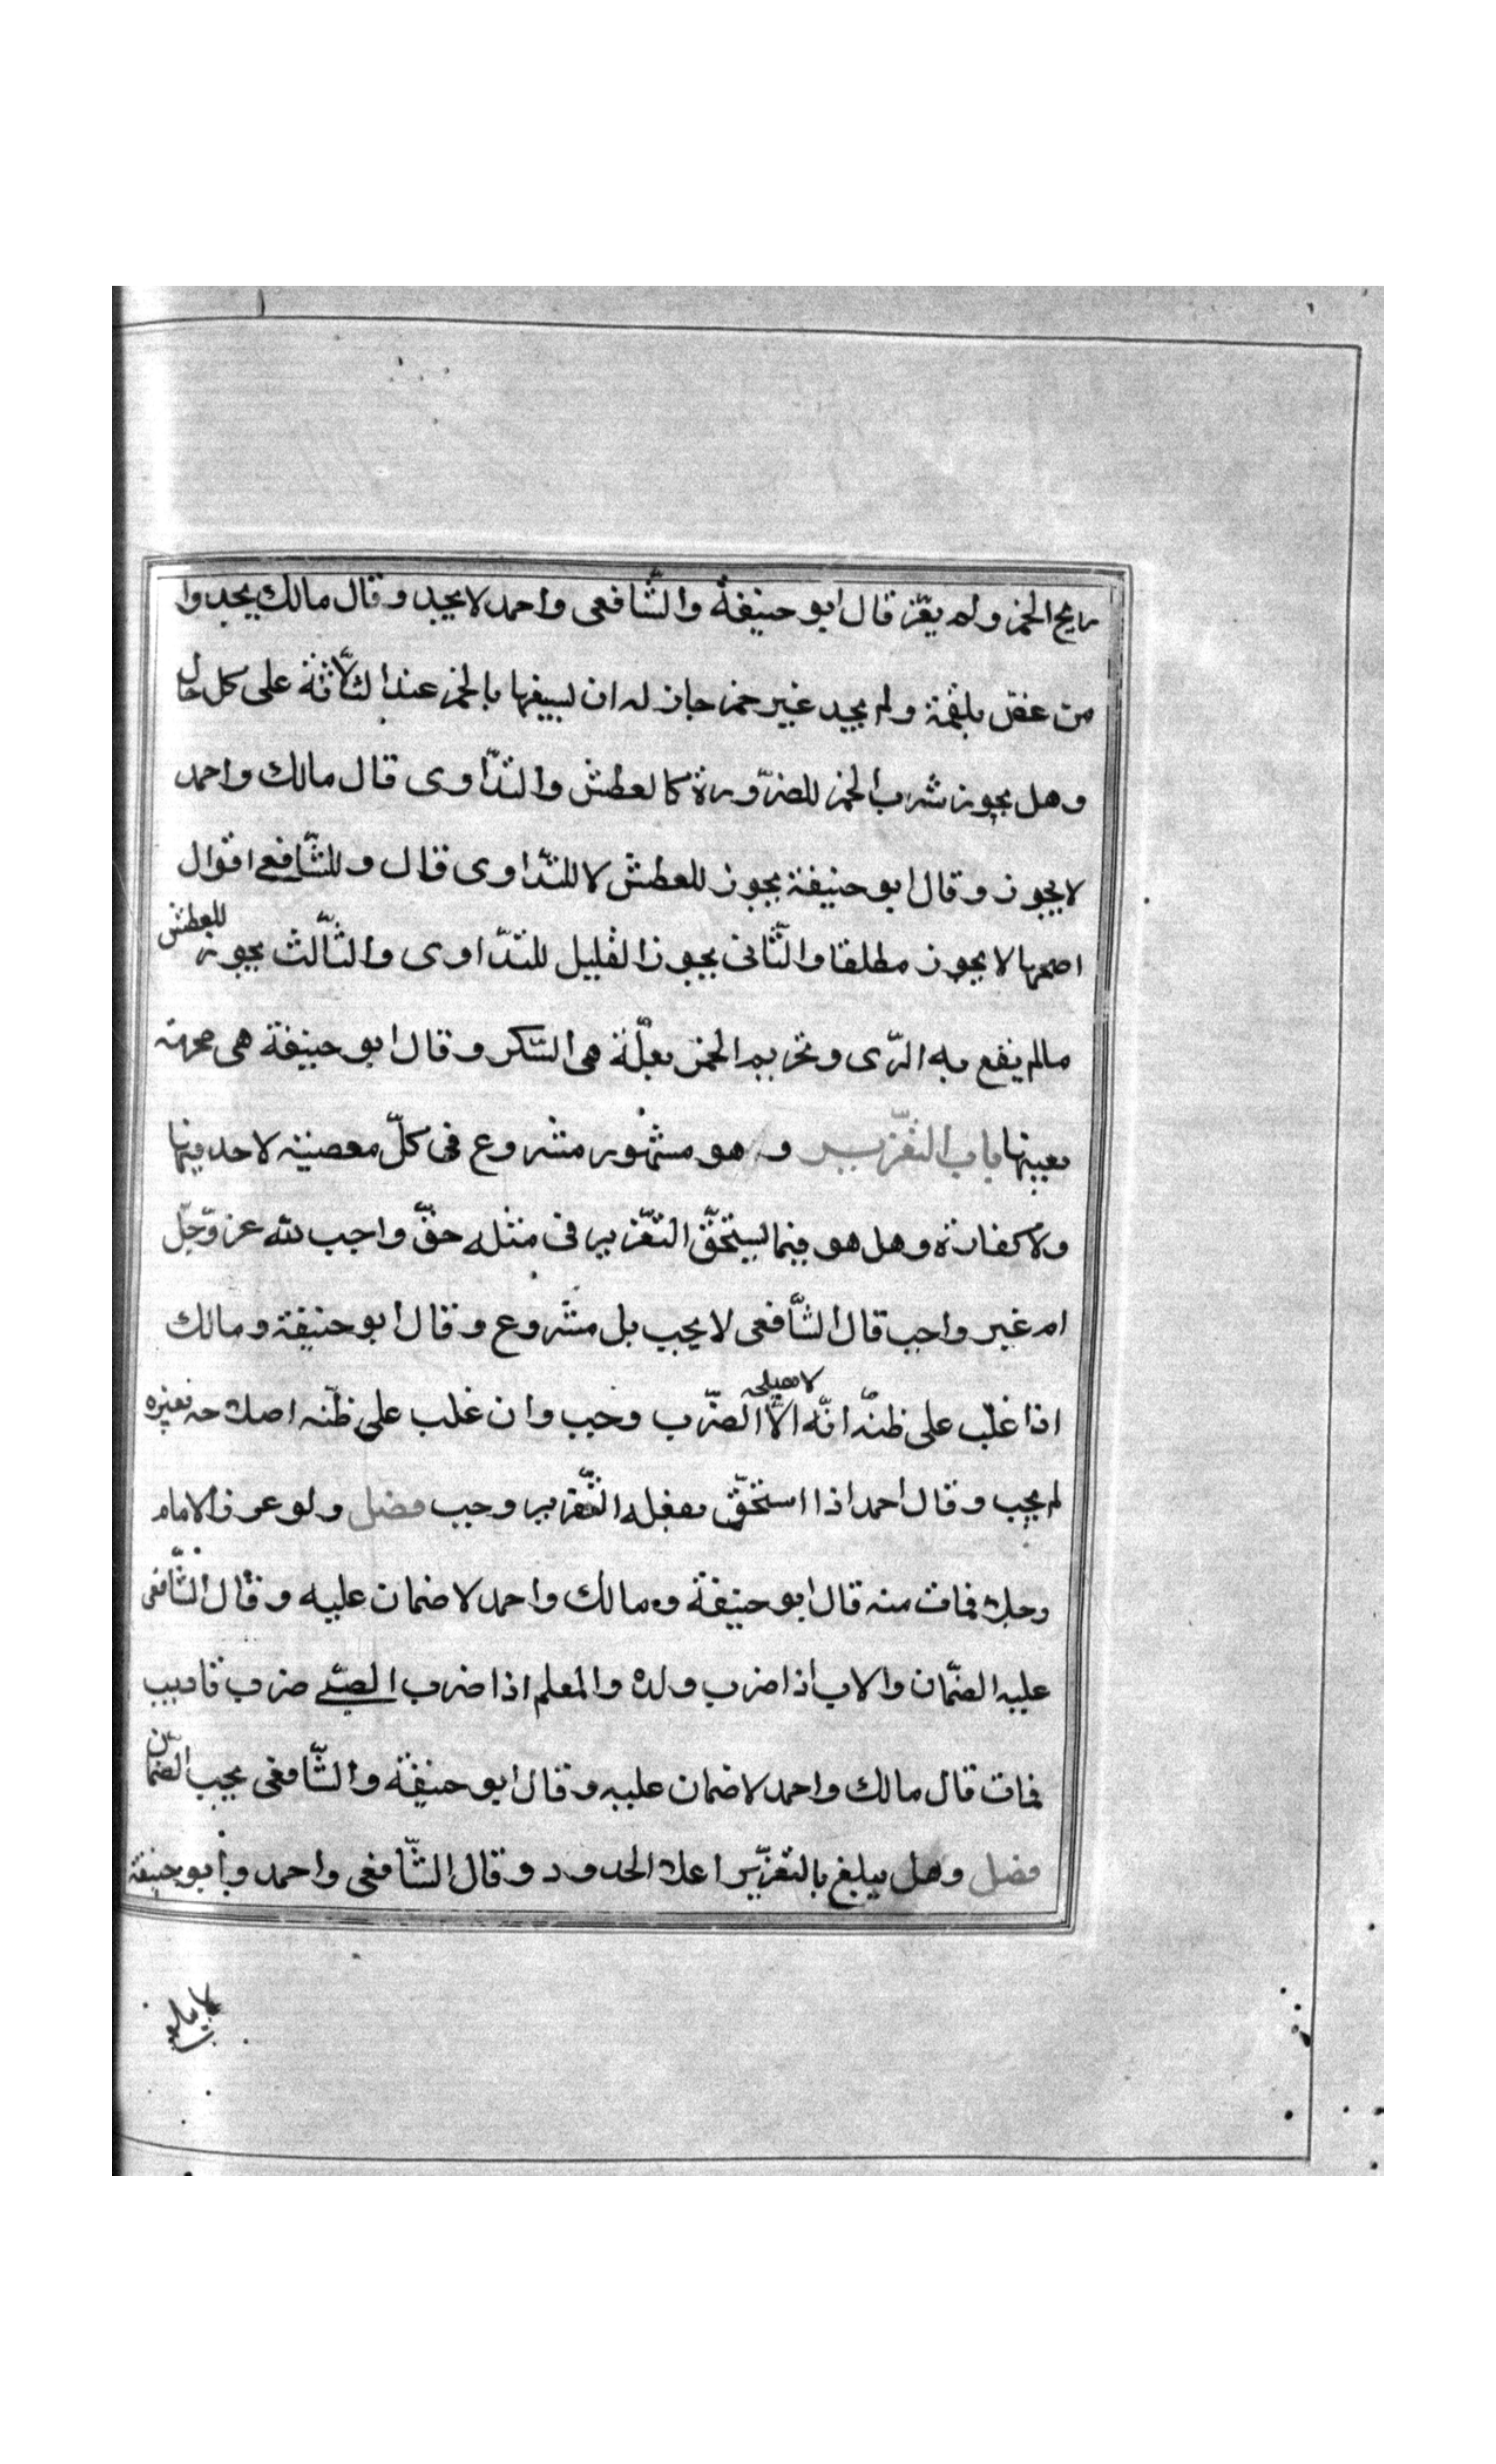 ريح الخمر ولم يقرّ قال ابو حنيفة والشّافعى واحمد لا يحد وقال مالك يحد وا
من غصّ بلقمة ولم يجد غير خمر جاز له ان يسيغها بالخمر عند الثلاثة على كل حال
وهل يجوز شرب الخمر للضرّورة كالعطش والتدّاوى قال مالك واحمد
لا يجوز وقال ابو حنيفة يجوز للعطش لا للتدّاوى قال وللشّافعى اقوال
اصحها لا يجوز مطلقا والثّانى يجوز القليل للتدّاوى والثّالث يجوز للعطش
مالم يقع به الرّى وتحريم الخمر بعلّة هى السّكر وقال ابو حنيفة هى محرمة
بعينها باب التعّزير وهو مشهور مشروع فى كلّ معصية لا حد فيها
ولا كفارة وهل هو فيما يستحّق التعّزير فى مثله حقّ واجب لله عز وجّل
ام غير واجب قال الشّافعى لا يجب بل مشروع وقال ابو حنيفة ومالك
اذا غلب على ظنّه انّه لا يصلحه الّا الضرّب وجب وان غلب على ظنّه اصلاحه بغيره
لم يجب وقال احمد اذا استحّق بفعله التعّزير وجب فصل ولو عزر الامام
رجلا فمات منه قال ابو حنيفة ومالك واحمد لا ضمان عليه وقال الشّافعى
عليه الضمّان والاب اذا ضرب ولده والمعلم اذا ضرب الصبّى ضرب تاديب
فمات قال مالك واحمد لا ضمان عليه وقال ابو حنيفة والشّافعى يجب الضمّان
فصل وهل يبلغ بالتعزّير اعلا الحدود وقال الشّافعى واحمد وابو حنيفة
لا يبلغ